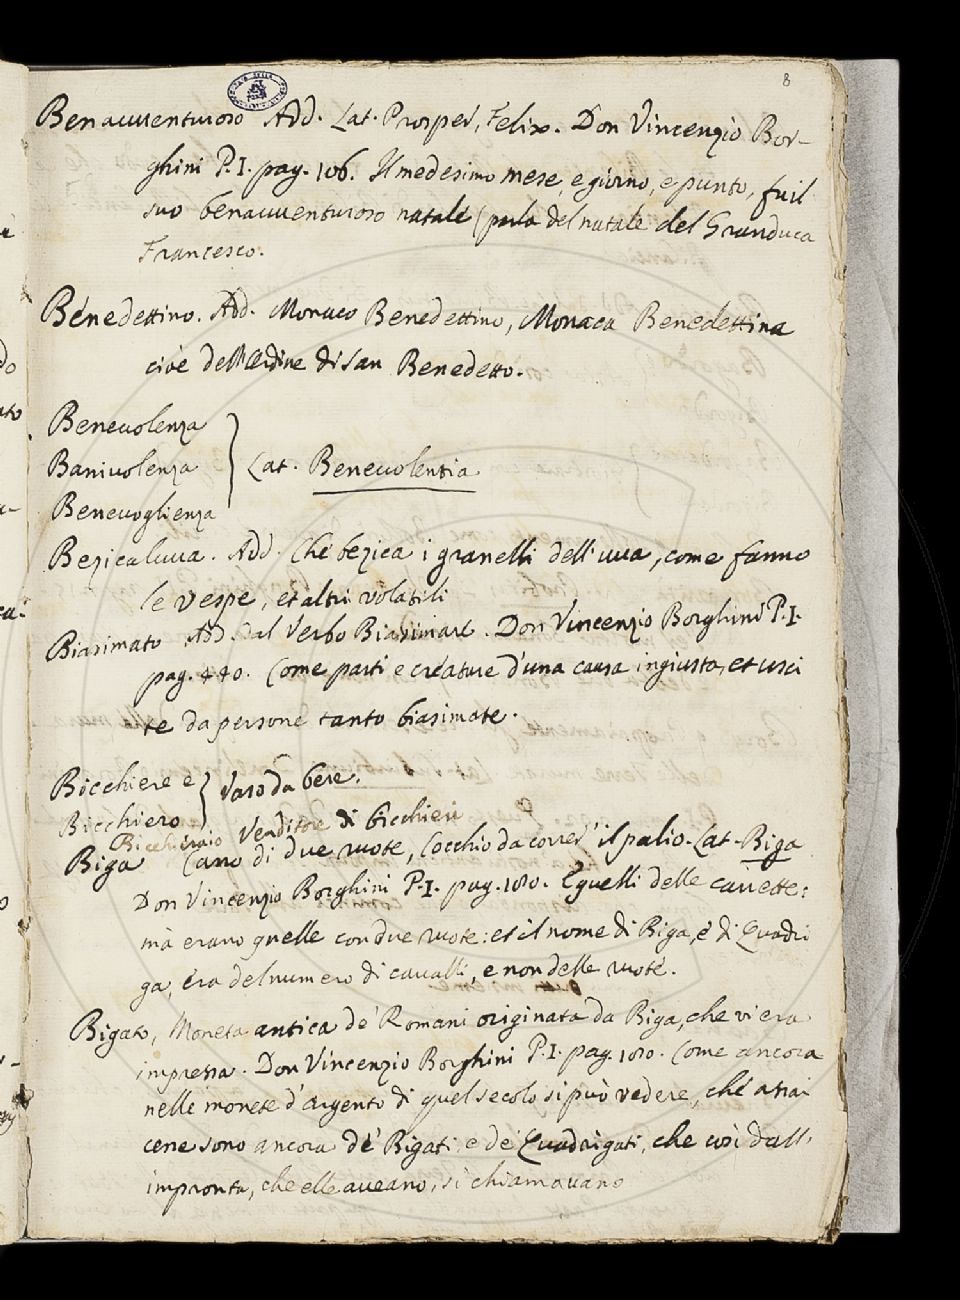 8
Benauuenturoso Add. Lat. Prosper, Felix. Don Vincenzio Bor-
ghini P.I. pag. 106. Il medesimo mese, e giorno, e punto, fu il
suo benauuenturoso natale (parla del natale del Granduca
Francesco.
Benedettino. Add. Monaco Benedettino, Monaca Benedettina
cioè dell'Ordine di San Benedetto.
Beneuolenza
Baniuolenza } Lat. Beneuolentia
Beneuoglienza
Bezicaluua. Add. Che bezica i granelli dell'uua, come fanno
le vespe, et altri volatili
Biasimato Add. dal Verbo Biasimare. Don Vincenzio Borghini P.I.
pag. 440. Come parti e creature d'una causa ingiusta, et usci
te da persone tanto biasimate.
Bicchiere e } Vaso da bere.
Bicchiero
Bicchieraio Venditore di bicchieri
Biga Carro di due ruote, Cocchio da correr' il palio. Lat. Biga
Don Vincenzio Borghini P.I. pag. 180. E quelli delle carrette:
mà erano quelle con due ruote: et il nome di Biga, è di Quadri
ga, era del numero di caualli, e non delle ruote.
Bigato, Moneta antica de' Romani originata da Biga, che vi era
impressa. Don Vincenzio Borghini P.I. pag. 180. Come ancora
nelle monete d'argento di quel secolo si può vedere, chè assai
cene sono ancora de' Bigati e de' Quadrigati, che così dall'
impronta, che elle aueano, si chiamauano